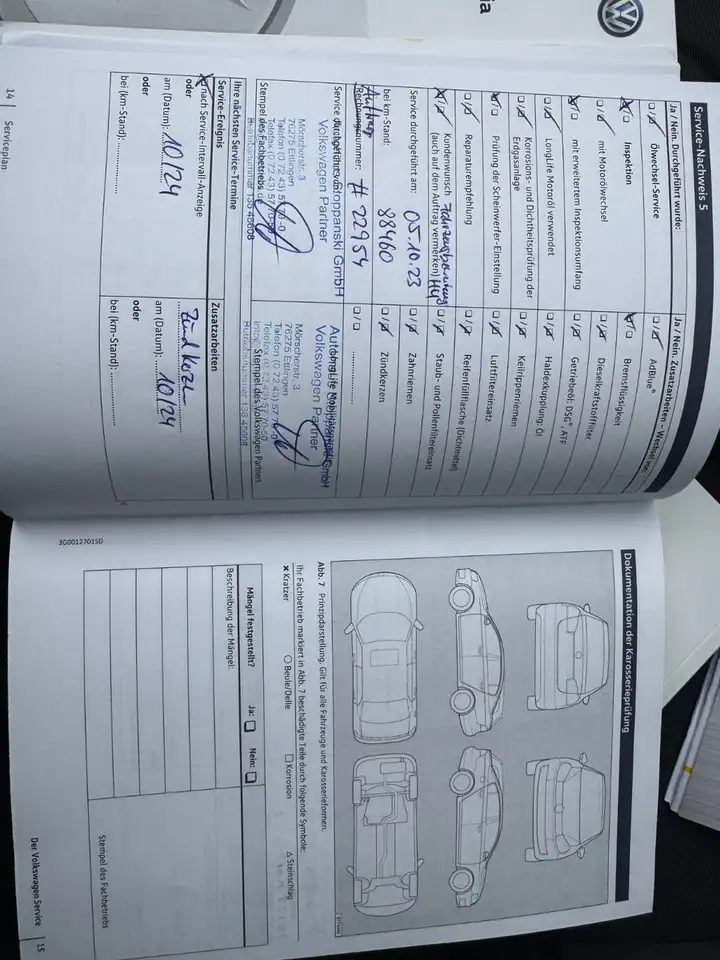 ia
Service-Nachweis 5
Ja / Nein. Durchgeführt wurde:
Ölwechsel-Service
Inspektion
mit Motorölwechsel
mit erweitertem Inspektionsumfang
LongLife Motoröl verwendet
Korrosions- und Dichtheitsprüfung der Erdgasanlage
Prüfung der Scheinwerfer-Einstellung
Reparaturempfehlung
Kundenwunsch
(auch auf dem Auftrag vermerken)
Service durchgeführt am: 05.10.23
bei km-Stand: 88460
Auftrag
Rechnungsnummer: # 22954
Service durchgeführt von:
Stoppanski GmbH
Volkswagen Partner
Mörscherstr. 3
76275 Ettlingen
Telefon (0 72 43) 57 70-0
Stempel des Fachbetriebs
Ihre nächsten Service-Termine
Service-Ereignis
nach Service-Intervall-Anzeige
oder
am (Datum): 10/24
oder
bei (km-Stand):
Ja / Nein. Zusatzarbeiten – Wechsel von:
AdBlue®
Bremsflüssigkeit
Dieselkraftstofffilter
Getriebeöl: DSG®, ATF
Haldexkupplung: Öl
Keilrippenriemen
Luftfiltereinsatz
Reifenfüllflasche (Dichtmittel)
Staub- und Pollenfiltereinsatz
Zahnriemen
Zündkerzen
LongLife Mobilitätsgarantie
Volkswagen Partner
Mörscherstr. 3
76275 Ettlingen
Telefon (0 72 43) 57 70-0
Stempel des Volkswagen Partners
Zusatzarbeiten
Zündkerzen
am (Datum): 10/24
oder
bei (km-Stand):
14 | Serviceplan
Dokumentation der Karosserieprüfung
Abb. 7 Prinzipdarstellung. Gilt für alle Fahrzeuge und Karosserieformen.
Ihr Fachbetrieb markiert in Abb. 7 beschädigte Teile durch folgende Symbole:
✖ Kratzer ○ Beule/Delle □ Korrosion △ Steinschlag
Mängel festgestellt? Ja: □ Nein: □
Beschreibung der Mängel:
Stempel des Fachbetriebs
3G0012701SD
Der Volkswagen Service | 15